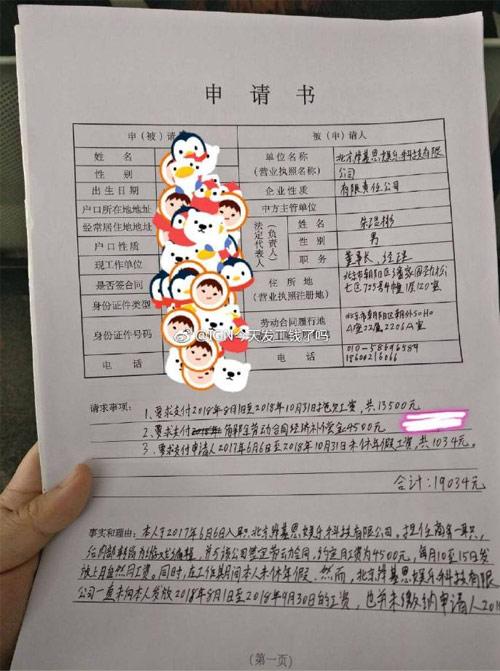 申请书
申(被)请 被(申)请人
姓名 单位名称(营业执照名称) 北京 娱乐科技有限公司
性别
出生日期 企业性质 有限责任公司
户口所在地地址 中方主管单位
经常居住地地址 法定代表人(负责人) 姓名 朱
户口性质 性别 男
现工作单位 职务 董事长、经理
是否签合同 住所地(营业执照注册地) 北京市朝阳区潘家园劲松七区725号4幢1层120室
身份证件类型
身份证件号码 劳动合同履行地 北京市朝阳区朝外SOHO A座22层2206A室
电话 电话 010-58696584
18600216066
@IGN今天发工钱了吗
请求事项:1、要求支付2018年8月1日至2018年10月31日拖欠工资,共13500元
2、要求支付 解除劳动合同经济补偿金4500元
3、要求支付申请人2017年6月6日至2018年10月31日未休年假工资,共1034元。
合计:19034元
事实和理由:本人于2017年6月6日入职北京 娱乐科技有限公司,担任商务一职,
后内部转岗为 编辑,并与该公司签定劳动合同,约定月工资为4500元,每月10至15日发
放上月自然月工资。同时,在工作期间本人未休年假。然而,北京 娱乐科技有限
公司一直未向本人发放2018年8月1日至2018年9月30日的工资,也并未缴纳申请人201
(第一页)